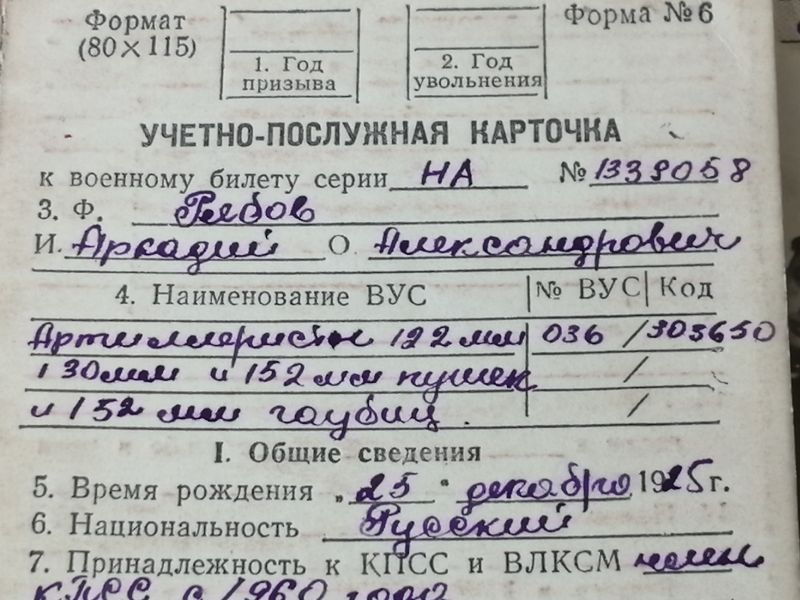 Формат
(80×115)
1. Год
призыва
2. Год
увольнения
Форма № 6
УЧЕТНО-ПОСЛУЖНАЯ КАРТОЧКА
к военному билету серии НА № 1339058
3. Ф. Рябов
И. Аркадий О Александрович
4. Наименование ВУС № ВУС Код
Артиллеристы 122 мм 036 / 303650
130 мм и 152 мм пушек /
и 152 мм гаубиц. /
I. Общие сведения
5. Время рождения „25" декабря 1925 г.
6. Национальность Русский
7. Принадлежность к КПСС и ВЛКСМ член
КПСС с 1960 года